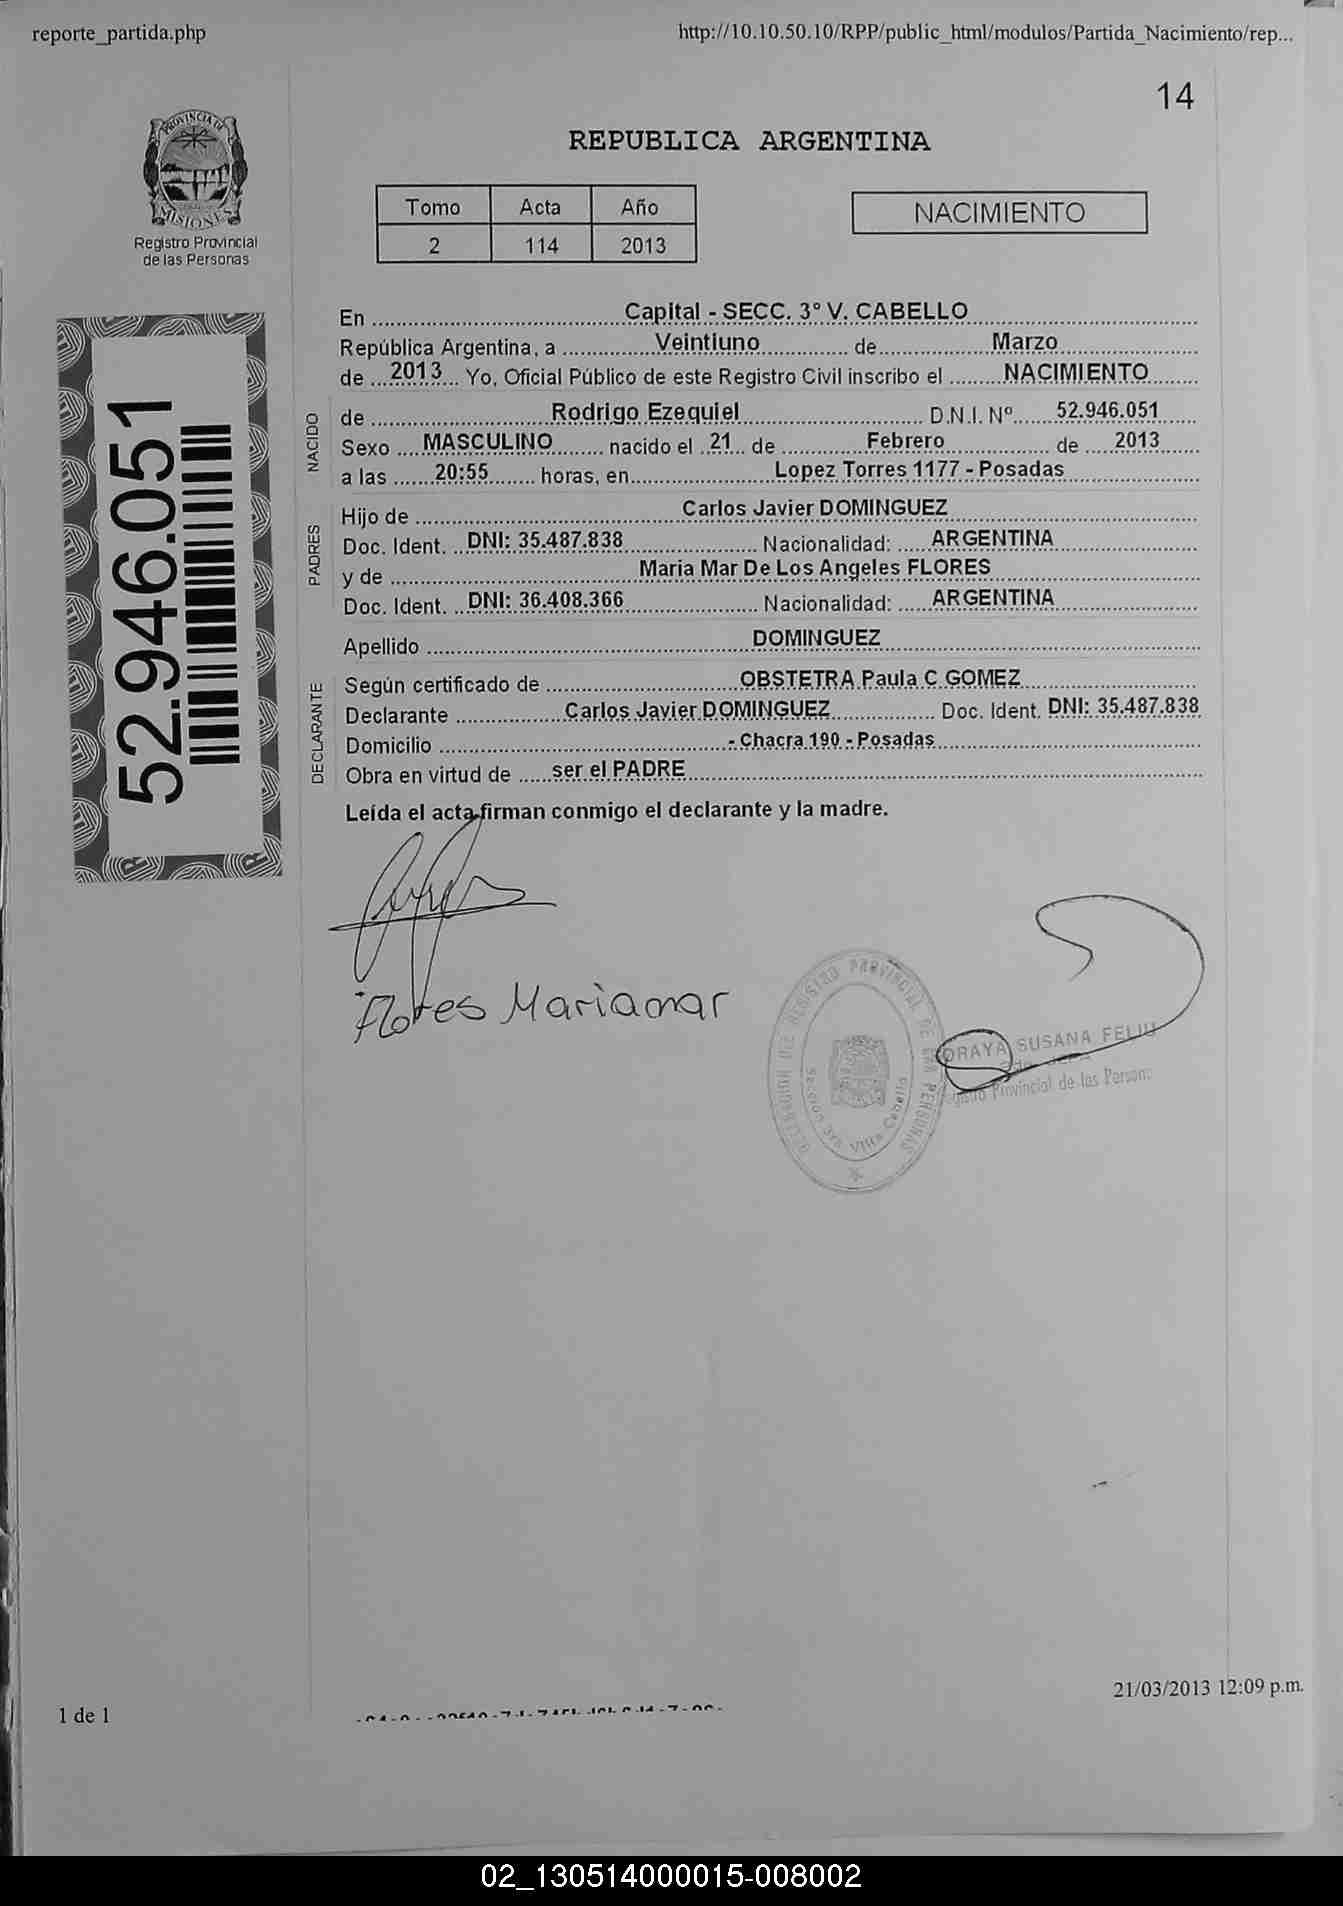 reporte_partida.php
http://10.10.50.10/RPP/public_html/modulos/Partida_Nacimiento/rep...
14
PROVINCIA DE
MISIONES
Registro Provincial
de las Personas
REPUBLICA ARGENTINA
Tomo Acta Año
2 114 2013
NACIMIENTO
52.946.051
En Capital - SECC. 3° V. CABELLO
República Argentina, a Veintiuno de Marzo
de 2013 Yo, Oficial Público de este Registro Civil inscribo el NACIMIENTO
NACIDO
de Rodrigo Ezequiel D.N.I. Nº 52.946.051
Sexo MASCULINO nacido el 21 de Febrero de 2013
a las 20:55 horas, en Lopez Torres 1177 - Posadas
PADRES
Hijo de Carlos Javier DOMINGUEZ
Doc. Ident. DNI: 35.487.838 Nacionalidad: ARGENTINA
y de Maria Mar De Los Angeles FLORES
Doc. Ident. DNI: 36.408.366 Nacionalidad: ARGENTINA
Apellido DOMINGUEZ
DECLARANTE
Según certificado de OBSTETRA Paula C GOMEZ
Declarante Carlos Javier DOMINGUEZ Doc. Ident. DNI: 35.487.838
Domicilio - Chacra 190 - Posadas
Obra en virtud de ser el PADRE
Leída el acta firman conmigo el declarante y la madre.
Flores Mariamar
DELEGACION DEL REGISTRO PROVINCIAL DE LAS PERSONAS
Sección 3ra. Villa Cabello
ORAYA SUSANA FELIU
Provincial de las Persona
21/03/2013 12:09 p.m.
1 de 1
02_130514000015-008002